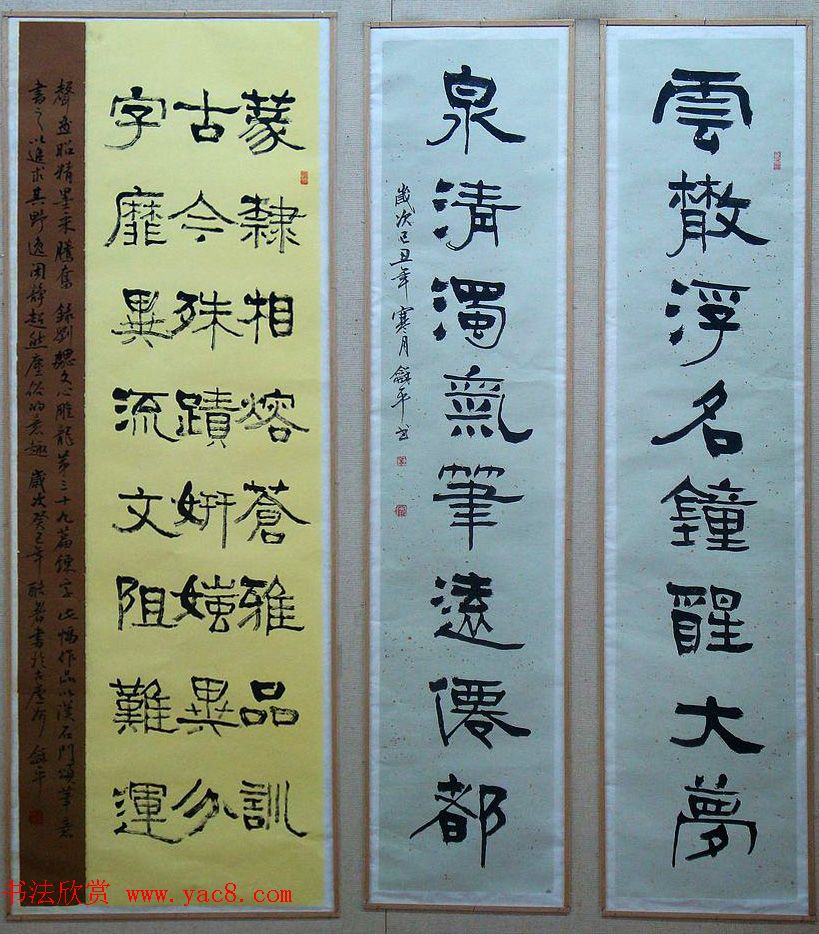 雲散浮名鐘醒大夢
泉清濁氣筆遠僊都
歲次己丑年寒月龢平书
篆隸相熔蒼雅品訓
古今殊蹟妍媸異分
字靡異流文阻難運
聲畫昭精墨采騰奮 錄劉勰文心雕龍第三十九篇練字 此幅作品以漢石門頌筆意
書之以追求其野逸闲静超然塵俗的意趣 歲次癸巳年 龢平
书法欣赏 www.yac8.com